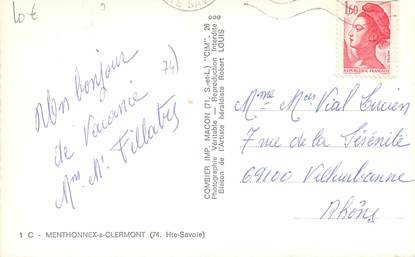 10 €
1,60
REPUBLIQUE FRANÇAISE
74)
Un bonjour
de Vacance
Mme Mr Fillatre
COMBIER IMP. MACON (71. S.-et-L.) "CIM" 26
Photographie Véritable — Reproduction Interdite
Blason de l'Artiste héraldiste Robert LOUIS
Mme Mr Vial Lucien
7 rue de la Sérénité
69100 Villeurbanne
Rhône
1 C - MENTHONNEX-s-CLERMONT (74. Hte-Savoie)